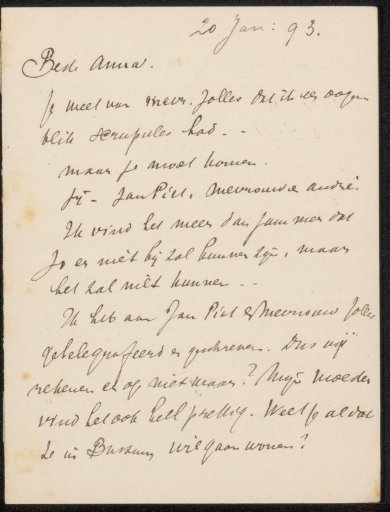 20 Jan: 93.
Beste Anna.
Je weet van mevr. Jolles dat ik een oogen-
blik scrupules had. - -
maar je moet komen.
Jij - Jan Piet, Mevrouw & André.
Ik vind het meer dan jammer dat
Jo er niet bij zal kunnen zijn, maar
het zal niet kunnen - -
Ik heb aan Jan Piet & Mevrouw Jolles
getelegrafeerd en geschreven. Dus wij
rekenen er op niet waar? Mijn moeder
vind het ook heel prettig. Weet je al dat
ze in Bussum wil gaan wonen?